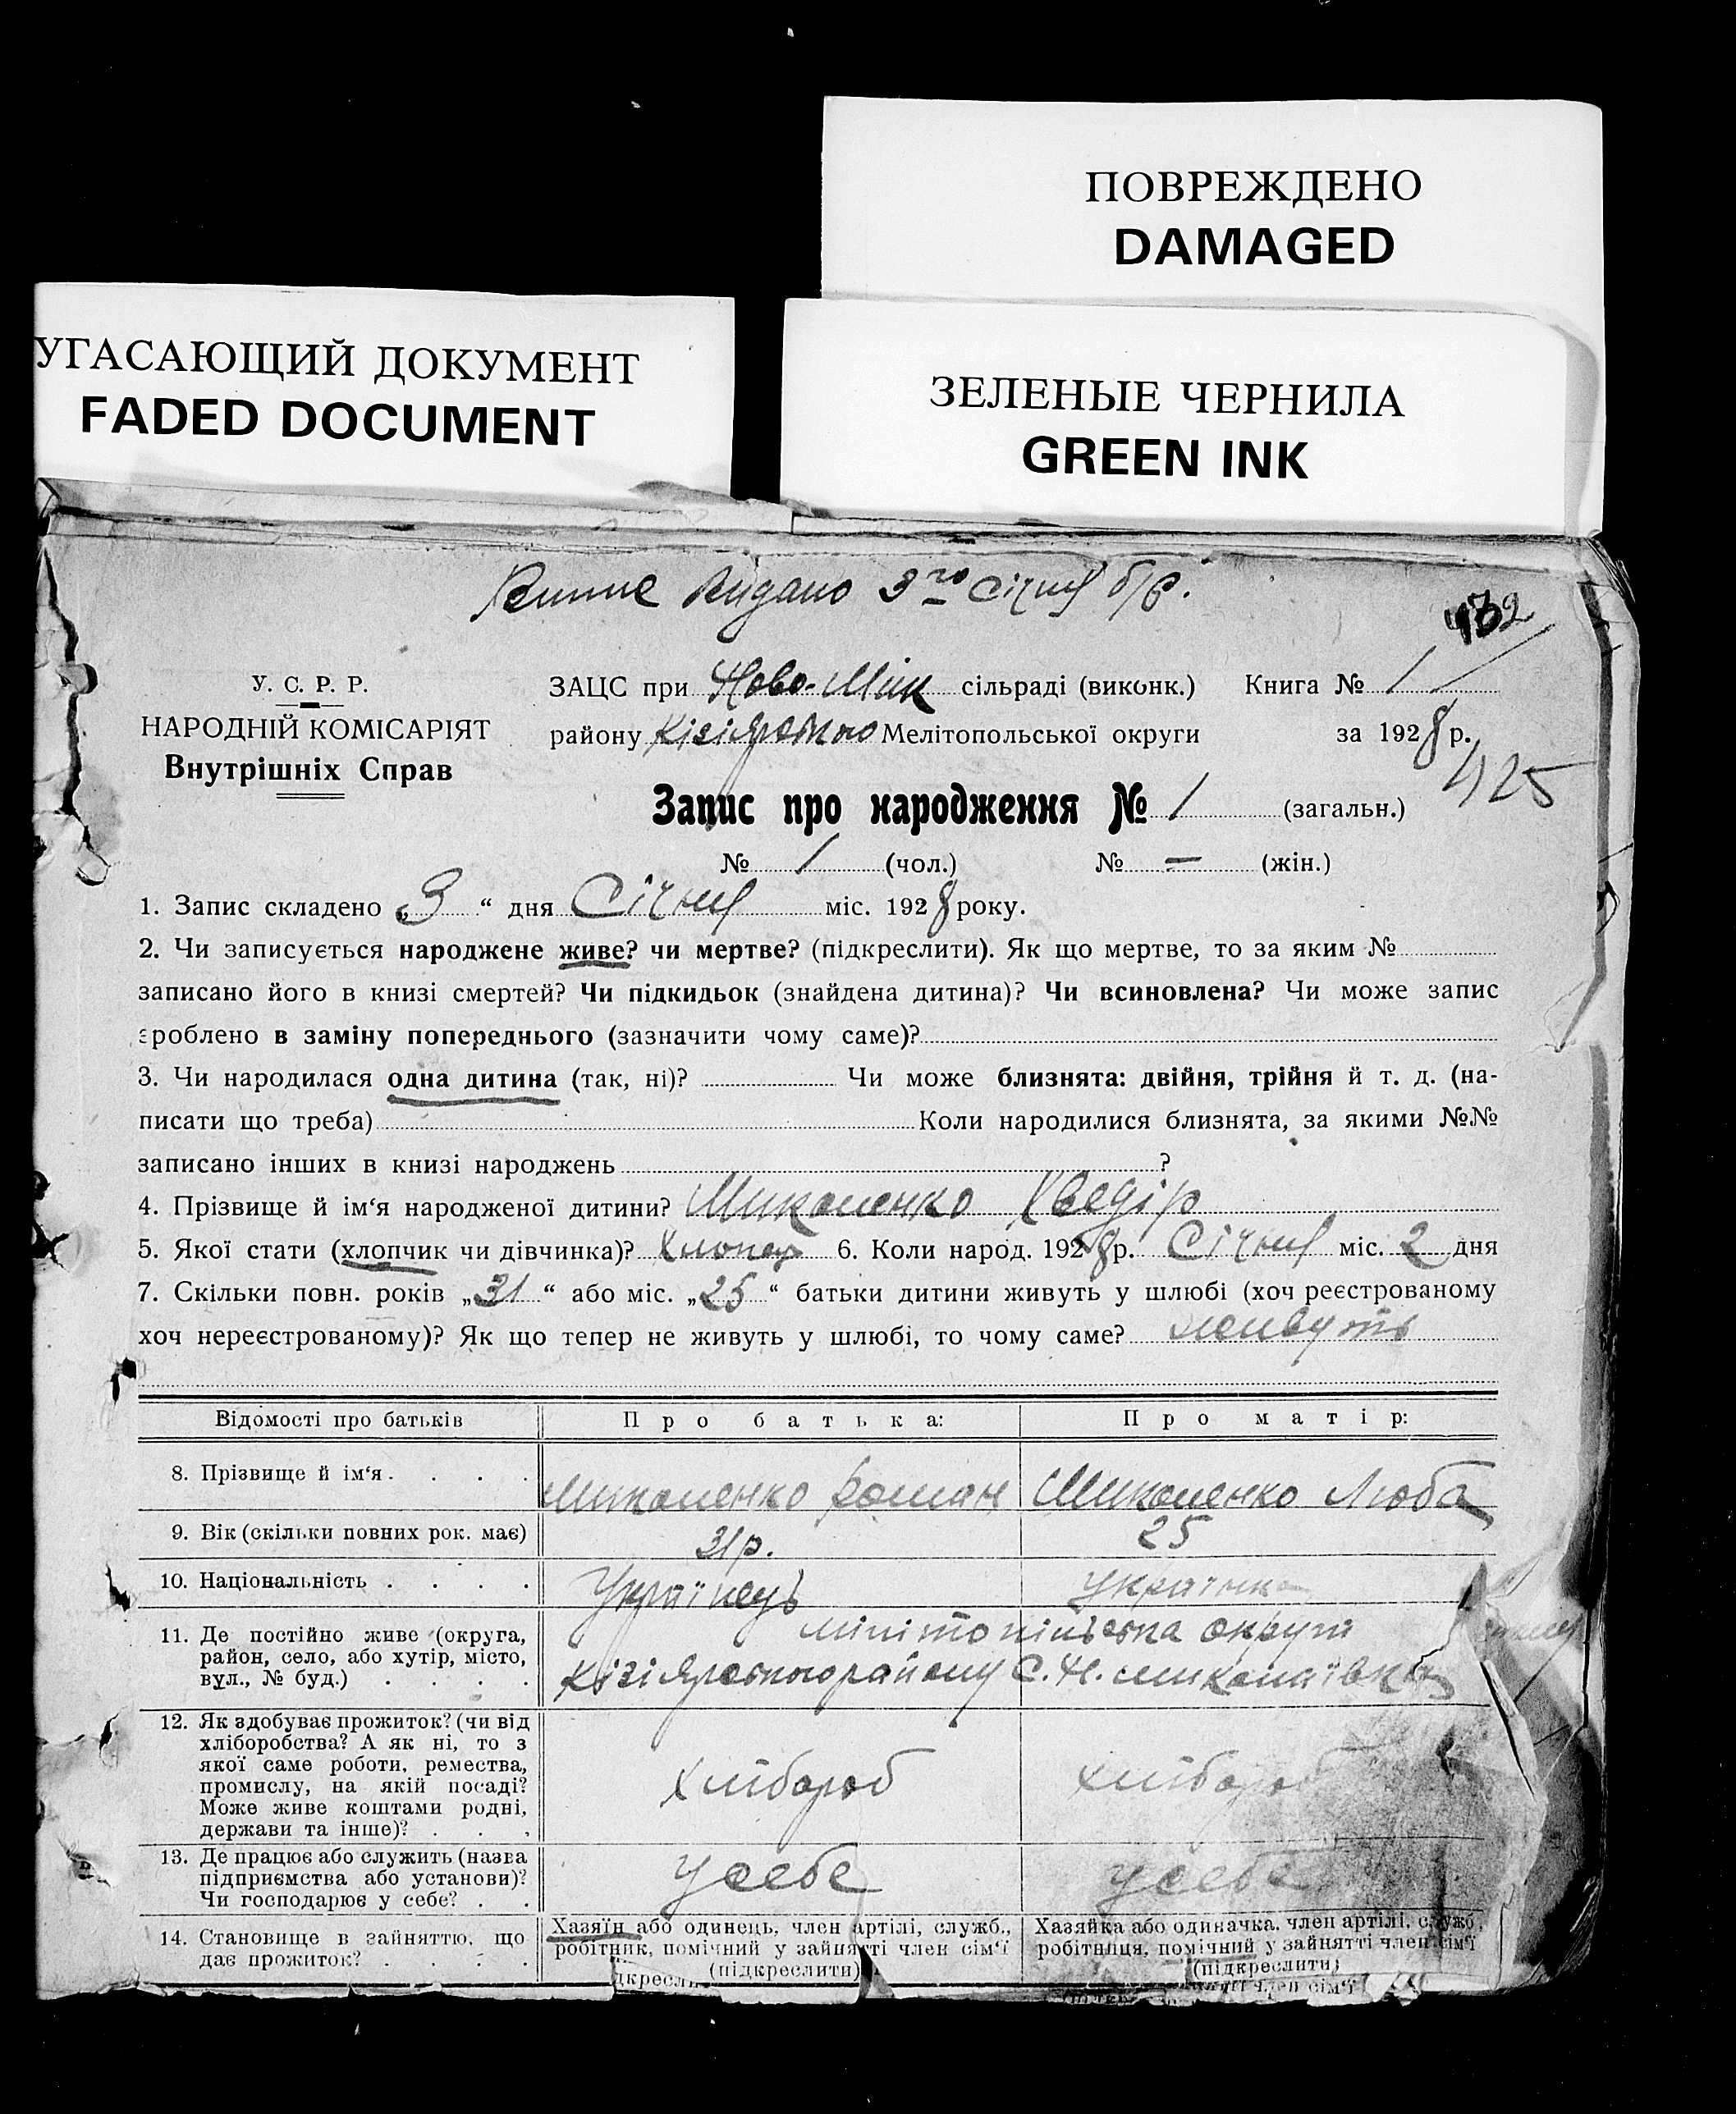 ПОВРЕЖДЕНО
DAMAGED
УГАСАЮЩИЙ ДОКУМЕНТ
FADED DOCUMENT
ЗЕЛЕНЫЕ ЧЕРНИЛА
GREEN INK
видано 3го січня б/р.
432
У. С. Р. Р.
НАРОДНІЙ КОМІСАРІЯТ
Внутрішніх Справ
ЗАЦС при Ново-Мик сільраді (виконк.) Книга № 1
району Кізіярського Мелітопольської округи за 1928 р.
425
Запис про народження № 1 (загальн.)
№ 1 (чол.) № — (жін.)
1. Запис складено „3“ дня Січня міс. 1928 року.
2. Чи записується народжене живе? чи мертве? (підкреслити). Як що мертве, то за яким №
записано його в книзі смертей? Чи підкидьок (знайдена дитина)? Чи всиновлена? Чи може запис
зроблено в заміну попереднього (зазначити чому саме)?
3. Чи народилася одна дитина (так, ні)? Чи може близнята: двійня, трійня й т. д. (на-
писати що треба) Коли народилися близнята, за якими №№
записано інших в книзі народжень ?
4. Прізвище й ім‘я народженої дитини? Миколенко Хведір
5. Якої стати (хлопчик чи дівчинка)? Хлопец 6. Коли народ. 1928 р. Січня міс. 2 дня
7. Скільки повн. років „31“ або міс. „25“ батьки дитини живуть у шлюбі (хоч реєстрованому
хоч нереєстрованому)? Як що тепер не живуть у шлюбі, то чому саме? живуть
Відомості про батьків Про батька: Про матір:
8. Прізвище й ім‘я Миколенко Роман Миколенко Люба
9. Вік (скільки повних рок. має) 31р. 25
10. Національність Українець Українка
11. Де постійно живе (округа,
район, село, або хутір, місто,
вул., № буд.)
Мілітопільська округи
Кізіярського району С. Н. Миколаївка
12. Як здобуває прожиток? (чи від
хліборобства? А як ні, то з
якої саме роботи, ремества,
промислу, на якій посаді?
Може живе коштами родні,
держави та інше)?
Хлібороб Хлібороб
13. Де працює або служить (назва
підприємства або установи)?
Чи господарює у себе?
У себе У себе
14. Становище в зайняттю, що
дає прожиток?
Хазяїн або одинець, член артілі, служб.,
робітник, помічний у зайнятті член сім‘ї
(підкреслити)
Хазяйка або одиначка, член артілі, служб,
робітниця, помічний у зайнятті член сім‘ї
(підкреслити)